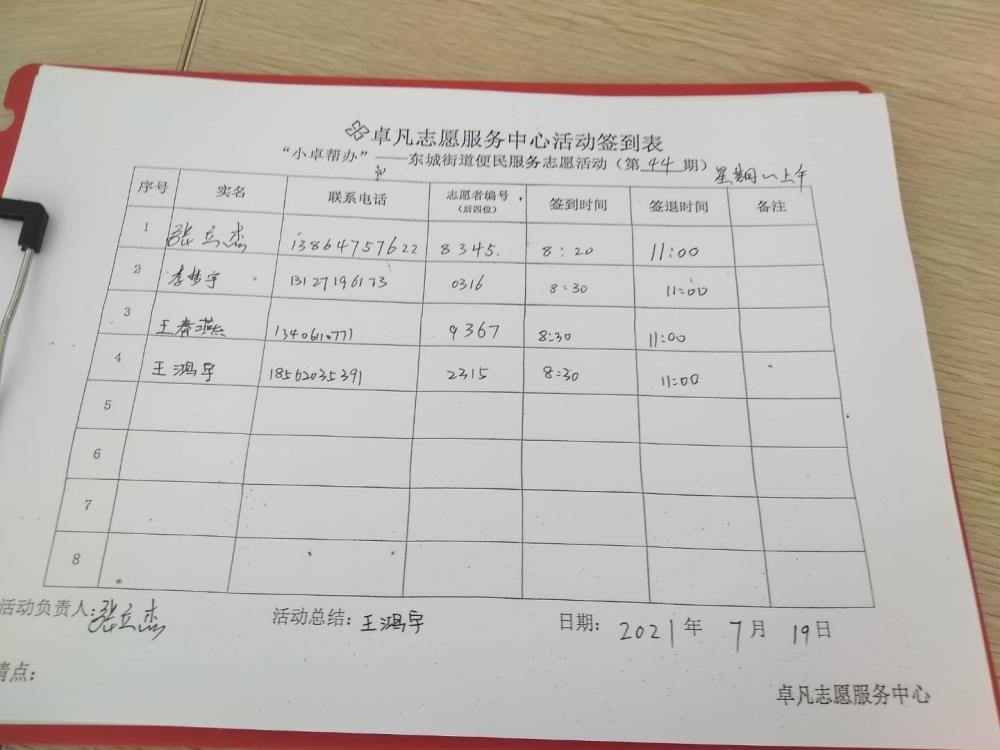 卓凡志愿服务中心活动签到表
“小卓帮办”——东城街道便民服务志愿活动（第 44 期）星期一上午
序号 实名 联系电话 志愿者编号（后四位） 签到时间 签退时间 备注
1 张立杰 13864757622 8345. 8:20 11:00
2 李梦宇 13127196173 0316 8:30 11:00
3 王春燕 13406110771 9367 8:30 11:00
4 王鸿宇 18562035391 2315 8:30 11:00
5
6
7
8
活动负责人:张立杰 活动总结：王鸿宇 日期： 2021年 7月 19日
清点：
卓凡志愿服务中心